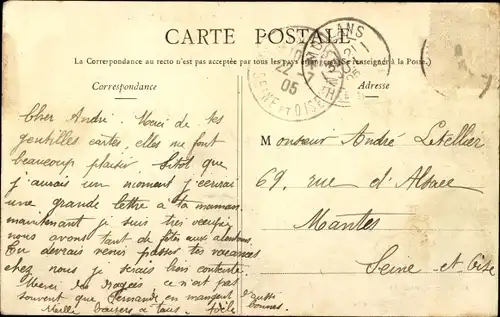 CARTE POSTALE
La Correspondance au recto n'est pas acceptée par tous les pays étrangers (Se renseigner à la Poste.)
Correspondance
Adresse
Cher André. Merci de tes
gentilles cartes, elles me font
beaucoup plaisir Sitôt que
j'aurais un moment j'ecrirai
une grande lettre à ta maman
maintenant je suis très occupée
nous avons tant de fêtes aux alentours.
Tu devrais venir passer tes vacances
chez nous je serais bien contente.
Merci des dragées, ce n'est pas
souvent que Fernande en mangent
d'aussi
bonnes.
Mille baisers à tous.
Monsieur André Letellier
69, rue d'Alsace
Mantes
Seine et Oise
22
7
05
SEINE ET OISE
ANS
21
05